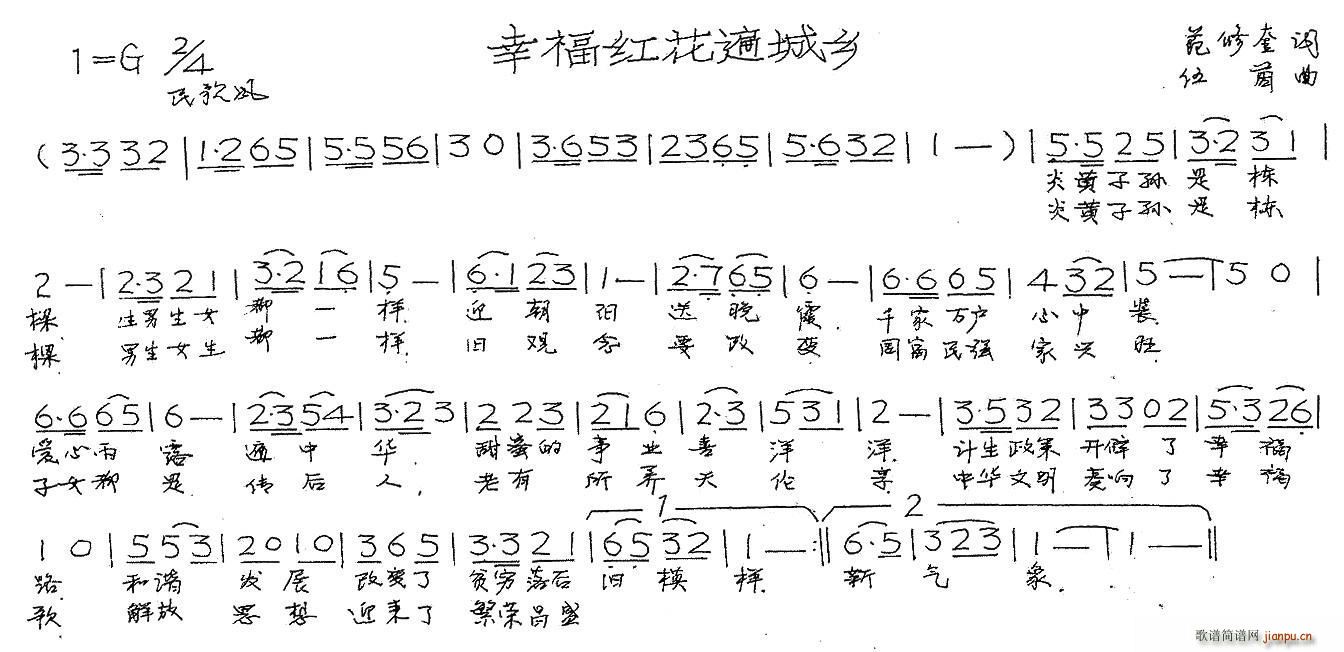 幸福红花遍城乡
1=G 2/4
民歌风
范修奎 词
伍 曲
(3·3 32 | 1·2 65 | 5·5 56 | 3 0 | 3·6 53 | 23 65 | 5·6 32 | 1 — ) | 5·5 25 | 3·2 31 |
炎黄子孙 是 栋
炎黄子孙 是 栋
2 — | 2·3 21 | 3·2 16 | 5 — | 6·1 23 | 1 — | 2·7 65 | 6 — | 6·6 65 | 4 32 | 5 — | 5 0 |
棵 生男生女 都 一 样 迎 朝 阳 送 晚 霞 千家万户 心 中 装
棵 男生女生 都 一 样 旧 观 念 要 改 变 国富民强 家 兴 旺
6·6 65 | 6 — | 2·3 54 | 3·2 3 | 2 2 3 | 21 6 | 2·3 | 5 31 | 2 — | 3·5 32 | 33 02 | 5·3 26 |
爱心雨 露 遍 中 华, 甜蜜的 事 业 喜 洋 洋 计生政策 开辟 了 幸 福
子女都 是 传 后 人, 老有 所 养 天 伦 享 中华文明 奏响 了 幸 福
1 0 | 5 53 | 20 10 | 3 6 5 | 3·3 21 | 1 65 32 | 1 — :‖ 2 6·5 | 3 23 | 1 — | 1 — ‖
路 和谐 发 展 改变了 贫穷落后 旧 模 样 新 气 象
歌 解放 思 想 迎来了 繁荣昌盛
歌谱简谱网 jianpu.cn